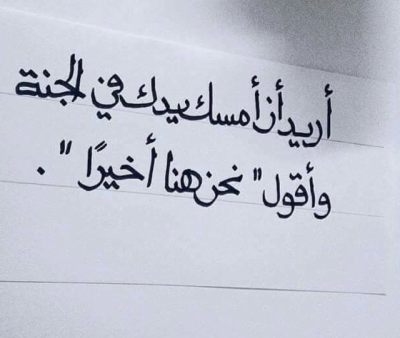 أريد أن أمسك بيدك في الجنة
وأقول " نحن هنا أخيرًا " .